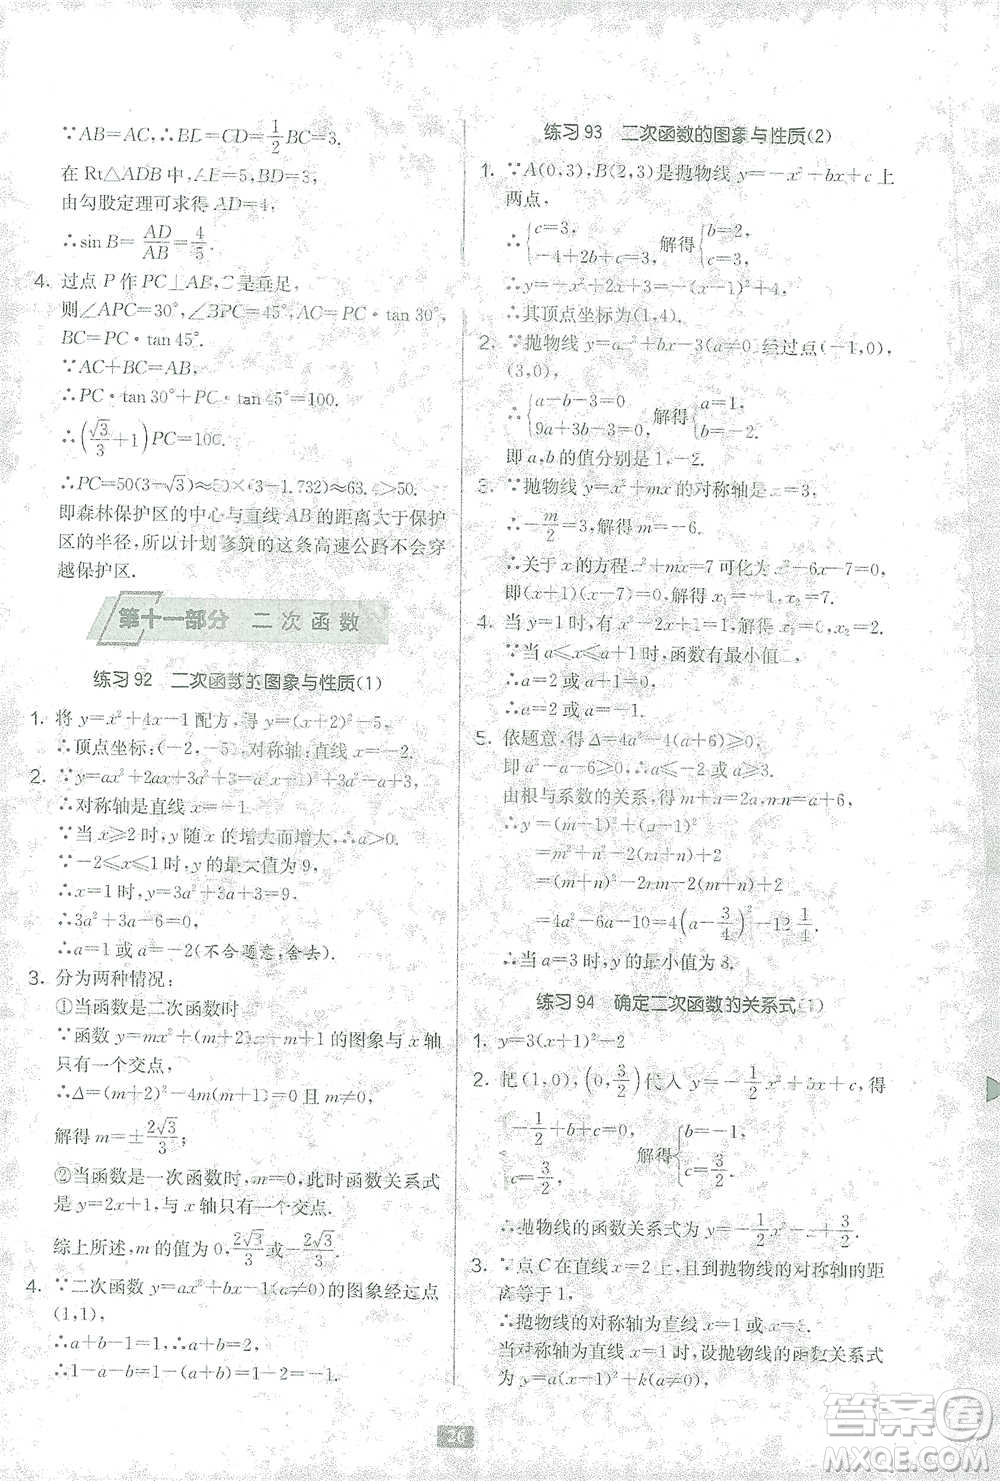 ∵AB=AC,∴BD=CD=1/2BC=3.
在Rt△ADB中,AB=5,BD=3,
由勾股定理可求得AD=4,
∴sin B=AD/AB=4/5.
4. 过点P作PC⊥AB,C是垂足,
则∠APC=30°,∠BPC=45°,AC=PC·tan 30°,
BC=PC·tan 45°.
∵AC+BC=AB,
∴PC·tan 30°+PC·tan 45°=100.
∴(√3/3+1)PC=100.
∴PC=50(3-√3)≈50×(3-1.732)≈63.4>50.
即森林保护区的中心与直线AB的距离大于保护
区的半径,所以计划修筑的这条高速公路不会穿
越保护区.
第十一部分 二次函数
练习92 二次函数的图象与性质(1)
1. 将y=x²+4x-1配方,得y=(x+2)²-5,
∴顶点坐标:(-2,-5),对称轴:直线x=-2.
2. ∵y=ax²+2ax+3a²+3=a(x+1)²+3a²-a+3,
∴对称轴是直线x=-1.
∵当x≥2时,y随x的增大而增大,∴a>0.
∵-2≤x≤1时,y的最大值为9,
∴x=1时,y=3a²+3a+3=9.
∴3a²+3a-6=0.
∴a=1或a=-2(不合题意,舍去).
3. 分为两种情况:
①当函数是二次函数时,
∵函数y=mx²+(m+2)x+1/2m+1的图象与x轴
只有一个交点,
∴Δ=(m+2)²-4m(1/2m+1)=0且m≠0.
解得m=±2√3/3;
②当函数是一次函数时,m=0,此时函数关系式
是y=2x+1,与x轴只有一个交点.
综上所述,m的值为0,2√3/3或-2√3/3.
4. ∵二次函数y=ax²+bx-1(a≠0)的图象经过点
(1,1),
∴a+b-1=1.∴a+b=2.
∴1-a-b=1-(a+b)=1-2=-1.
练习93 二次函数的图象与性质(2)
1. ∵A(0,3),B(2,3)是抛物线y=-x²+bx+c上
两点,
∴{c=3, -4+2b+c=3. 解得{b=2, c=3.
∴y=-x²+2x+3=-(x-1)²+4.
∴其顶点坐标为(1,4).
2. ∵抛物线y=ax²+bx-3(a≠0)经过点(-1,0),
(3,0),
∴{a-b-3=0, 9a+3b-3=0. 解得{a=1, b=-2.
即a,b的值分别是1,-2.
3. ∵抛物线y=x²+mx的对称轴是x=3,
∴-m/2=3,解得m=-6.
∴关于x的方程x²+mx=7可化为x²-6x-7=0,
即(x+1)(x-7)=0,解得x₁=-1,x₂=7.
4. 当y=1时,有x²-2x+1=1,解得x₁=0,x₂=2.
∵当a≤x≤a+1时,函数有最小值1,
∴a=2或a+1=0.
∴a=2或a=-1.
5. 依题意,得Δ=4a²-4(a+6)≥0,
即a²-a-6≥0,∴a≤-2或a≥3.
由根与系数的关系,得m+n=2a,mn=a+6,
∴y=(m-1)²+(n-1)²
=m²+n²-2(m+n)+2
=(m+n)²-2mn-2(m+n)+2
=4a²-6a-10=4(a-3/4)²-12 1/4.
∴当a=3时,y的最小值为8.
练习94 确定二次函数的关系式(1)
1. y=3(x+1)²-2
2. 把(1,0),(0,3/2)代入y=-1/2x²+bx+c,得
{-1/2+b+c=0, c=3/2. 解得{b=-1, c=3/2.
∴抛物线的函数关系式为y=-1/2x²-x+3/2.
3. ∵点C在直线x=2上,且到抛物线的对称轴的距
离等于1,
∴抛物线的对称轴为直线x=1或x=3.
当对称轴为直线x=1时,设抛物线的函数关系式
为y=a(x-1)²+k,
26
答案圈
MXQE.COM